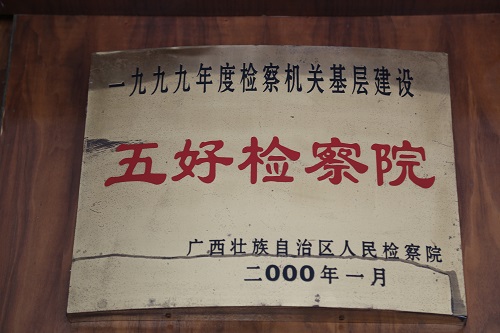 一九九九年度检察机关基层建设
五好检察院
广西壮族自治区人民检察院
二000年一月